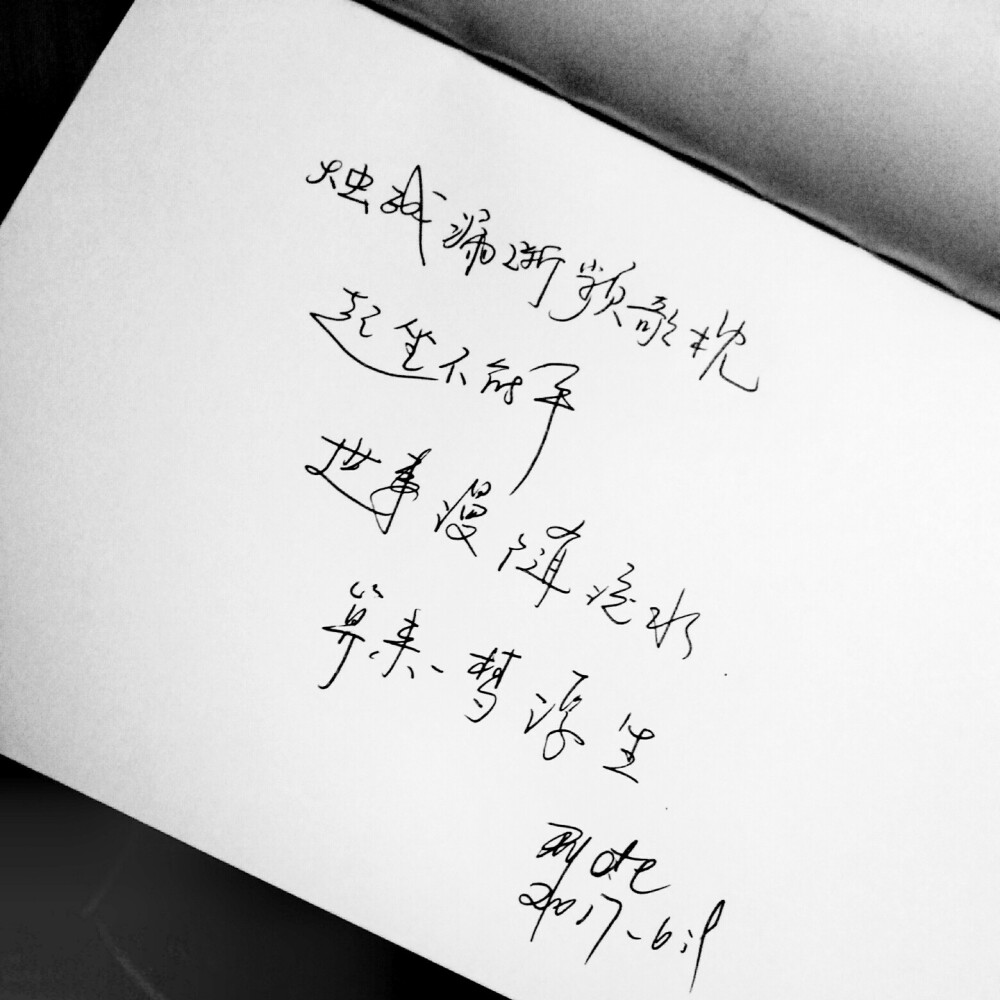 烛残漏断频欹枕
起坐不能平
世事漫随流水
算来一梦浮生
2017-6.19